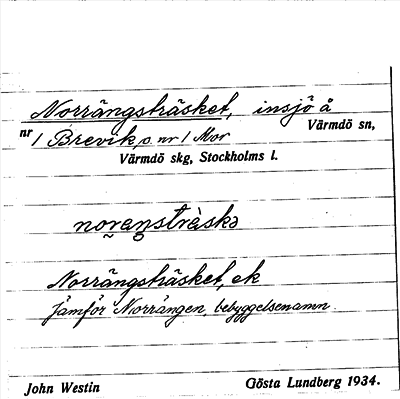 Norrängsträsket, insjö å
nr 1 Brevik, o. nr 1 Mor Värmdö sn,
Värmdö skg, Stockholms l.
noraŋstràskə
Norrängsträsket, ek
Jämför Norrängen, bebyggelsenamn
John Westin Gösta Lundberg 1934.